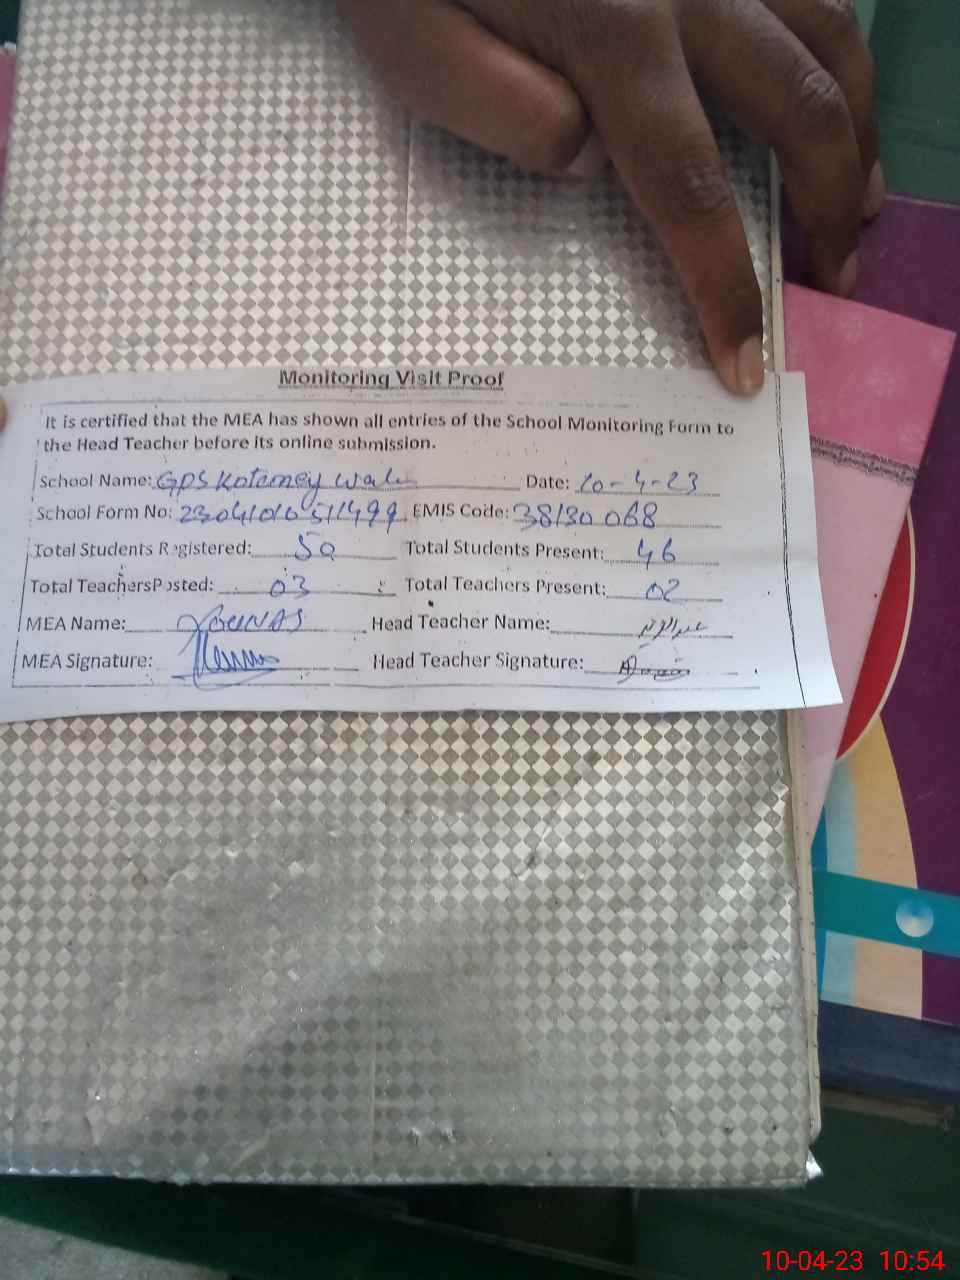 Monitoring Visit Proof
It is certified that the MEA has shown all entries of the School Monitoring Form to
the Head Teacher before its online submission.
School Name: GPS Kotaney Wali Date: 10-4-23
School Form No: EMIS Code: 38130068
Total Students Registered: 50 Total Students Present: 46
Total Teachers Posted: 03 Total Teachers Present: 02
MEA Name: YOUNAS Head Teacher Name:
MEA Signature: Head Teacher Signature:
10-04-23 10:54